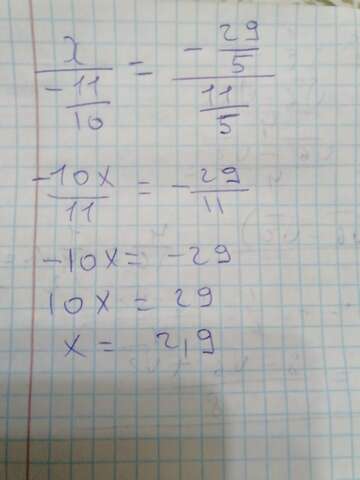 x / (-11/10) = (-29/5) / (11/5)
-10x/11 = -29/11
-10x = -29
10x = 29
x = 2,9